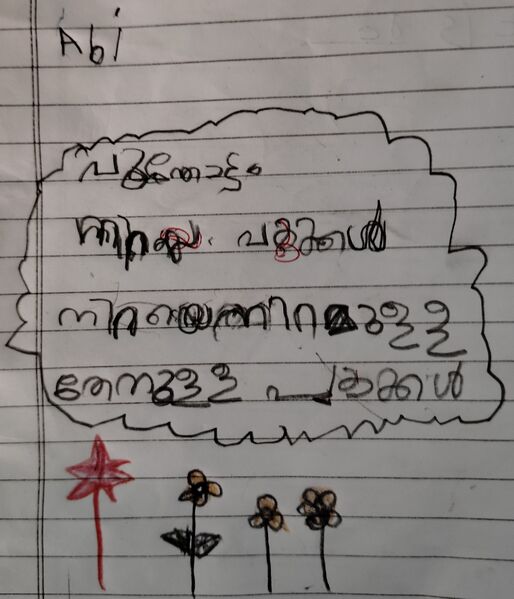 Abi
പൂന്തോട്ടം
നിറയെ പൂക്കൾ
നിറയെ നിറമുള്ള
തേനുള്ള പൂക്കൾ